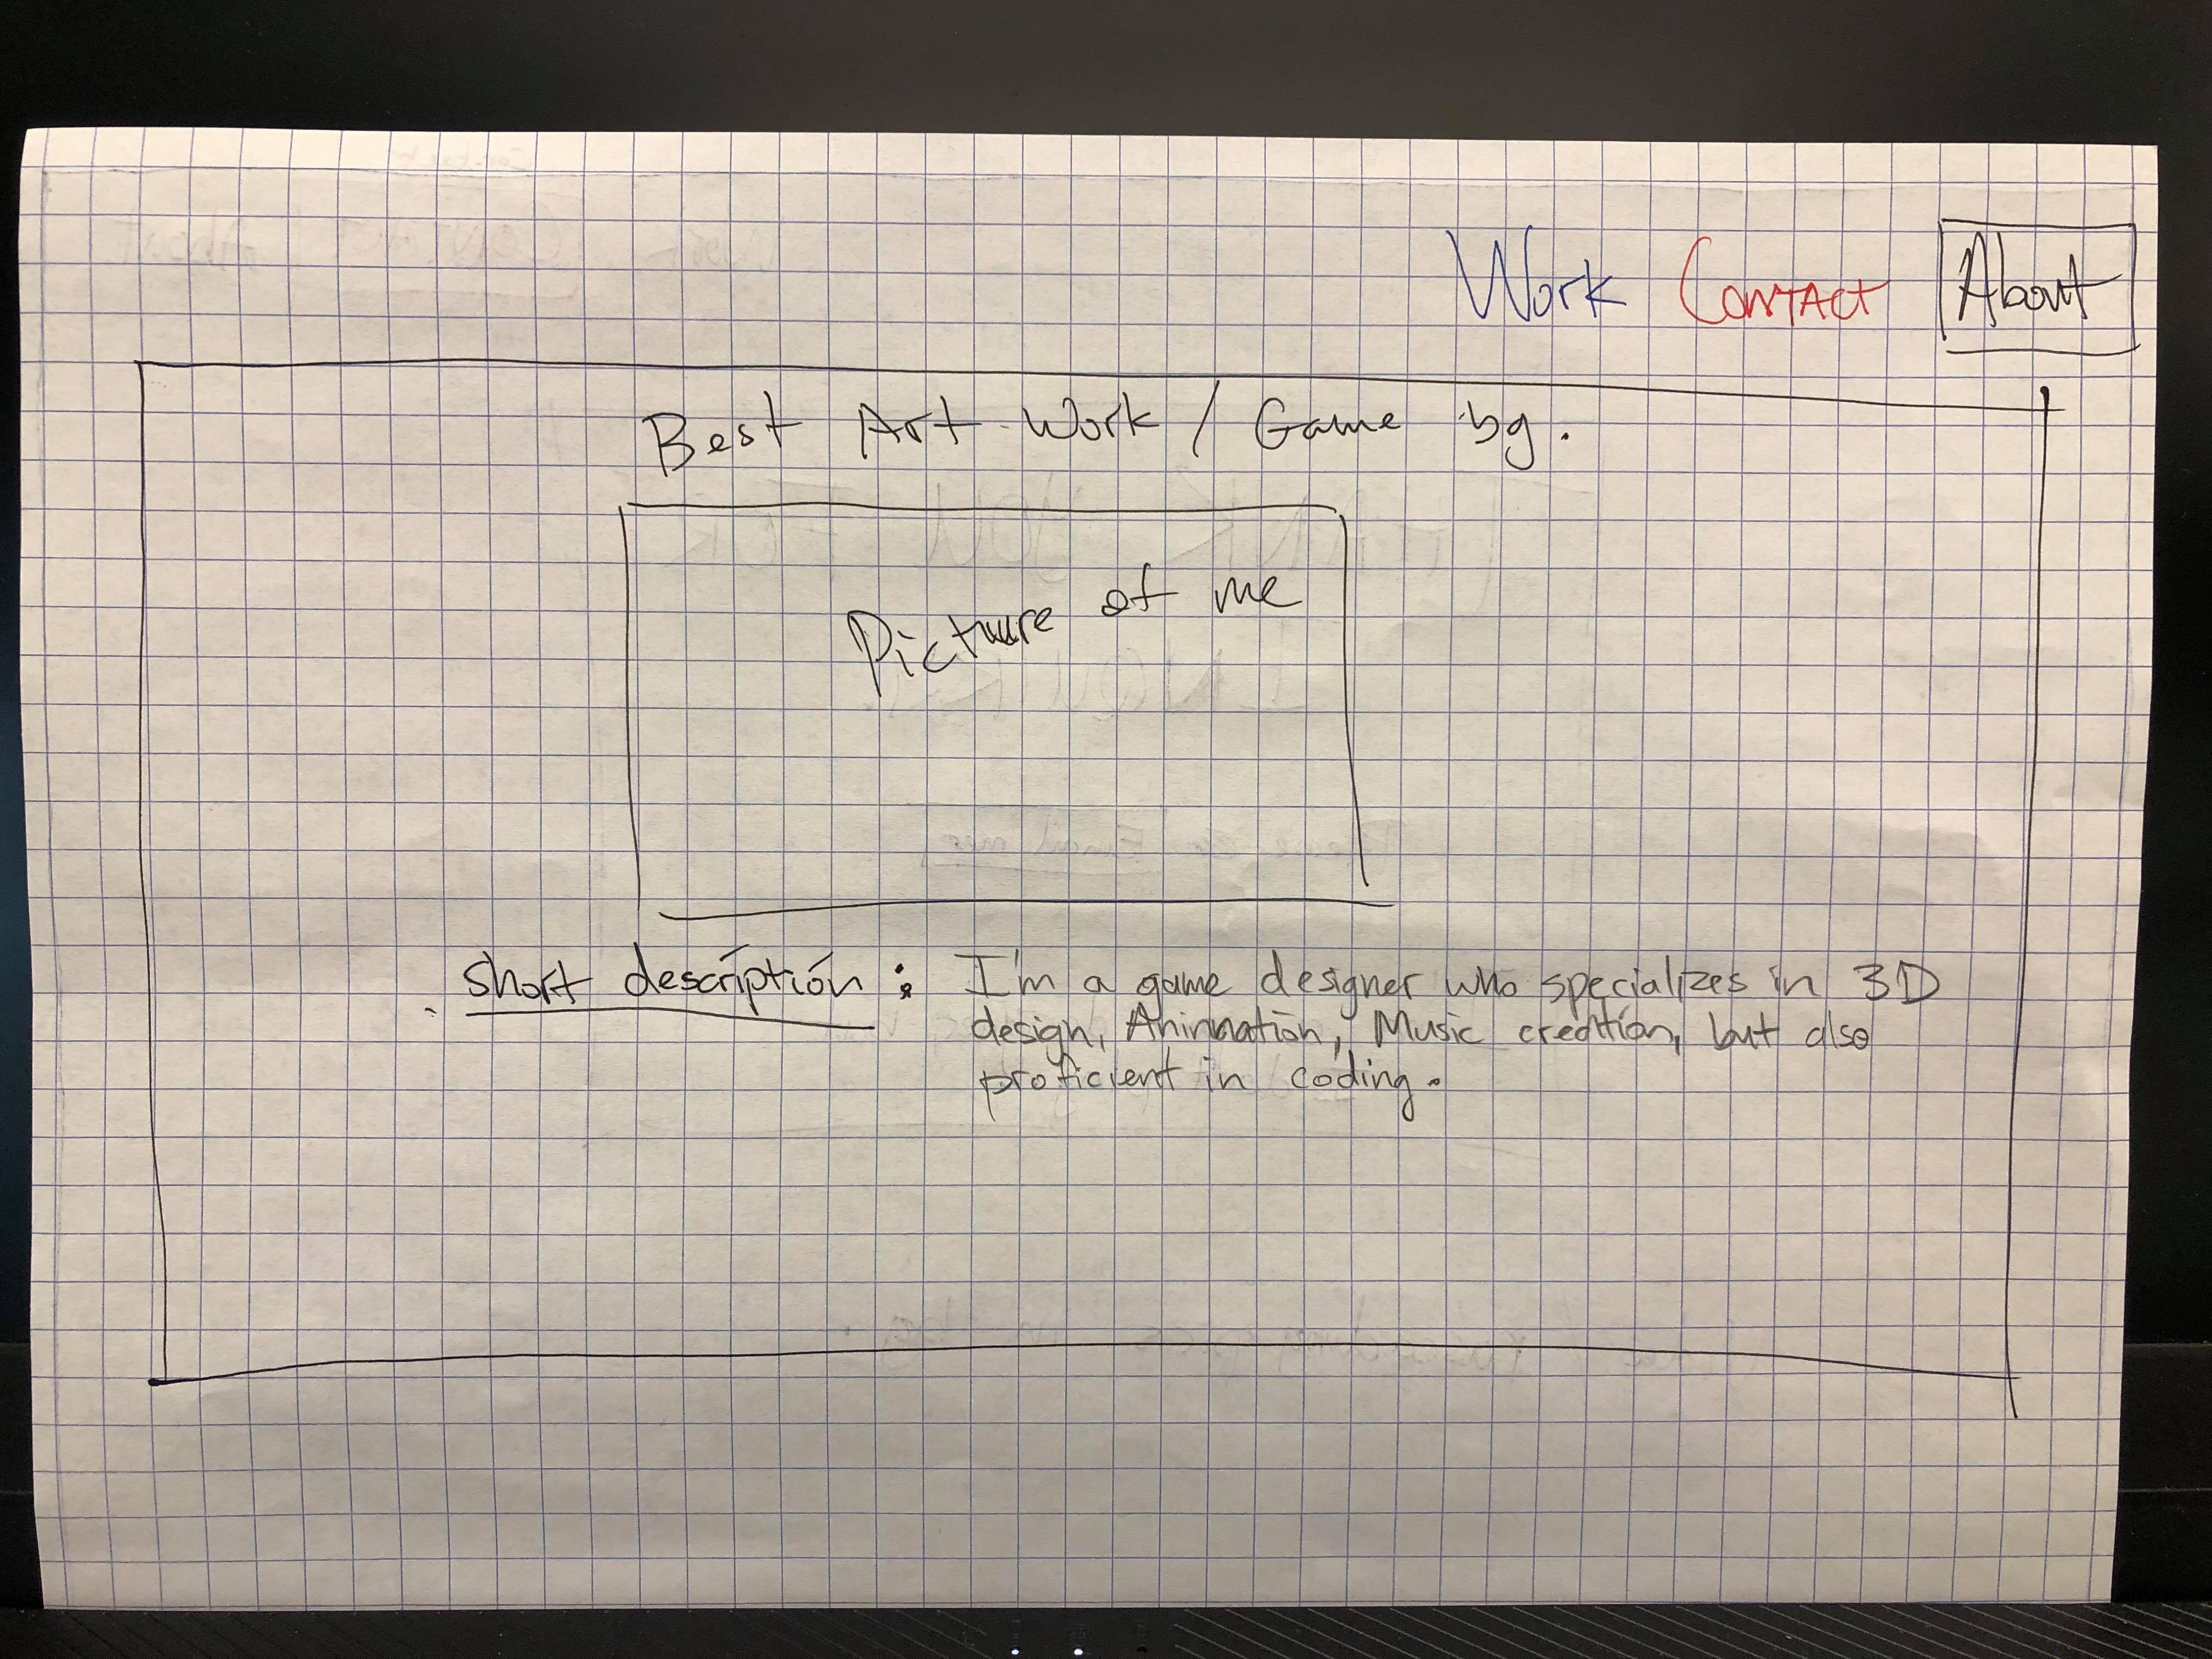 Work Contact About
Best Art Work / Game bg.
Picture of me
short description : I'm a game designer who specializes in 3D
design, Animation, Music creation, but also
proficient in coding.